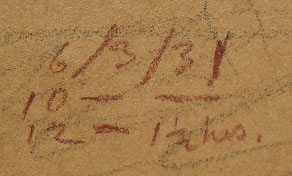 6/3/31
10 — —
12 — 1½ hrs.